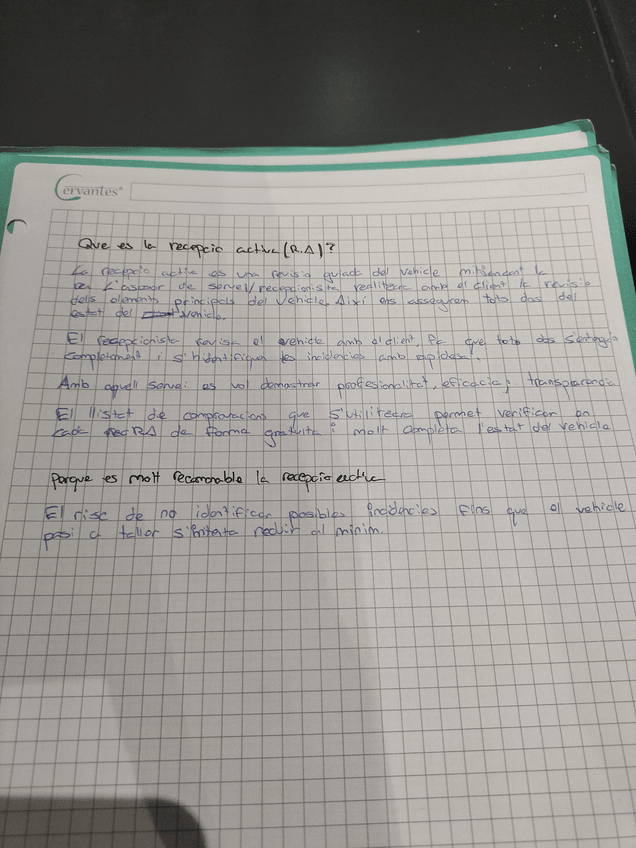 Cervantes®
Que es la recepcio activa (R.A)?
La recepcio activa es una revisio guiada del vehicle mitjançant la
L'assessor de servei/recepcionista realitzara amb el client la revisio
dels elements principals del vehicle. Aixi ens assegurem tots dos del
estat del vehicle.
El recepcionista revisa el vehicle amb el client, fa que tots dos s'entengin
completament i s'hidentifiquen les incidencies amb rapidesa.
Amb aquell servei es vol demostrar profesionalitat, eficacia i transparencia
El llistat de comprovacions que s'utilitzara permet verificar en
cada RA de forma gratuita i molt completa l'estat del vehicle
Porque es molt la recepcio activa
El risc de no identificar posibles incidencies fins que el vehicle
pasi a taller s'intenta reduir al minim.